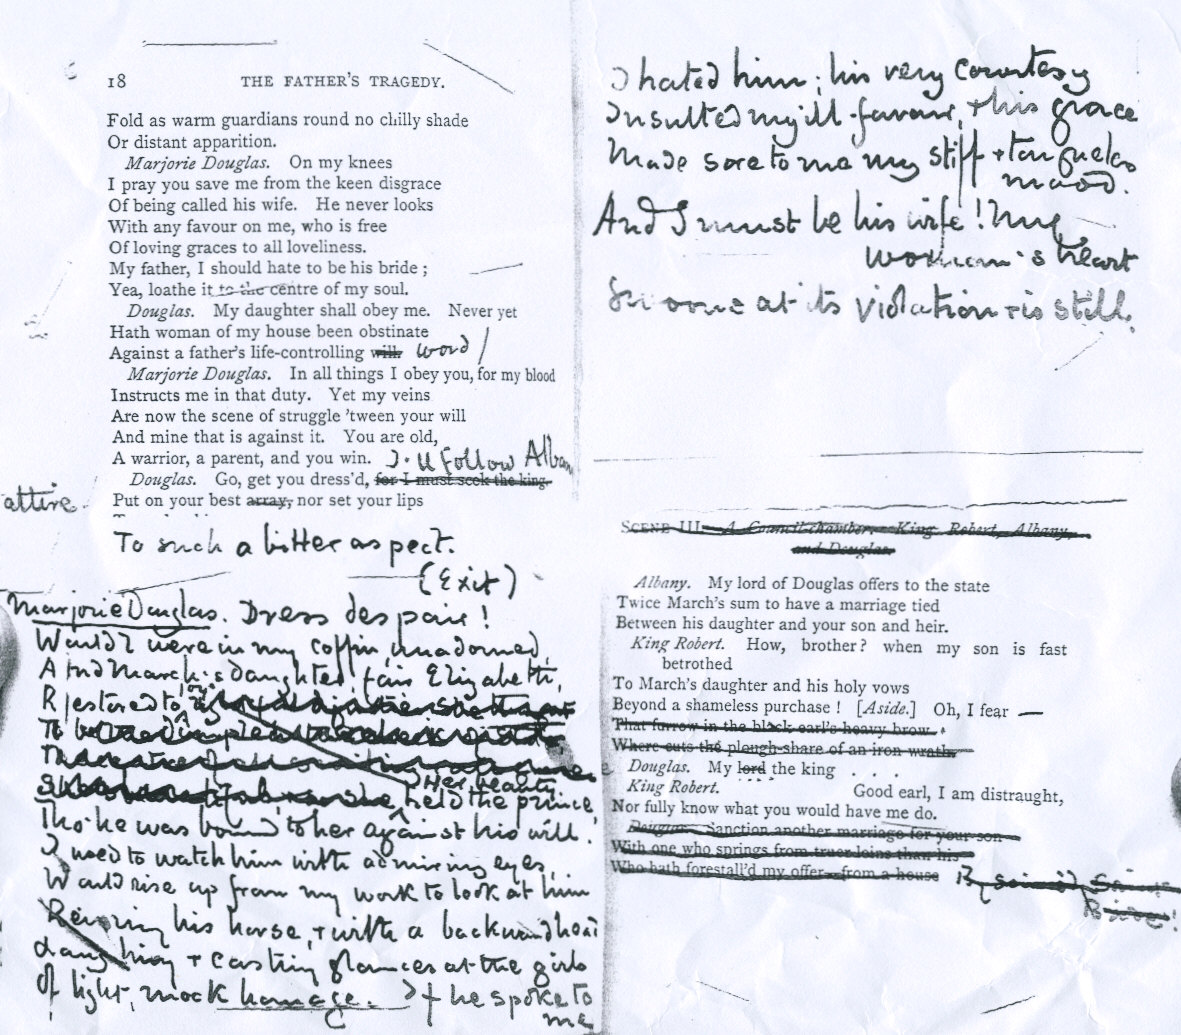 18 THE FATHER'S TRAGEDY.
Fold as warm guardians round no chilly shade
Or distant apparition.
Marjorie Douglas. On my knees
I pray you save me from the keen disgrace
Of being called his wife. He never looks
With any favour on me, who is free
Of loving graces to all loveliness.
My father, I should hate to be his bride ;
Yea, loathe it to the centre of my soul.
Douglas. My daughter shall obey me. Never yet
Hath woman of my house been obstinate
Against a father's life-controlling will. word /
Marjorie Douglas. In all things I obey you, for my blood
Instructs me in that duty. Yet my veins
Are now the scene of struggle 'tween your will
And mine that is against it. You are old,
A warrior, a parent, and you win. I'll follow Alban
Douglas. Go, get you dress'd, for I must seek the king.
attire. Put on your best array, nor set your lips
To such a bitter aspect.
(Exit)
Marjorie Douglas. Dress despair!
Would I were in my coffin, unadorned,
And March's daughter, fair Elizabeth,
Restored to
To be
Her beauty
held the prince,
Tho' he was bound to her against his will.
I used to watch him with admiring eyes,
Would rise up from my work to look at him
Reining his horse, & with a backward head
Laughing & casting glances at the girls
Of light, mock homage. If he spoke to
me
I hated him; his very courtesy
Insulted my ill-favour, & his grace
Made sore to me my stiff & tongueless
mood.
And I must be his wife! My
woman's heart
Swoons at its violation & is still.
SCENE III.—A Council-chamber. King Robert, Albany,
and Douglas.
Albany. My lord of Douglas offers to the state
Twice March's sum to have a marriage tied
Between his daughter and your son and heir.
King Robert. How, brother? when my son is fast
betrothed
To March's daughter and his holy vows
Beyond a shameless purchase ! [Aside.] Oh, I fear —
That furrow in the black earl's heavy brow.
Where cuts the plough-share of an iron wrath.
Douglas. My lord the king . . .
King Robert. Good earl, I am distraught,
Nor fully know what you would have me do.
Douglas. Sanction another marriage for your son
With one who springs from truer loins than his
Who hath forestall'd my offer—from a house